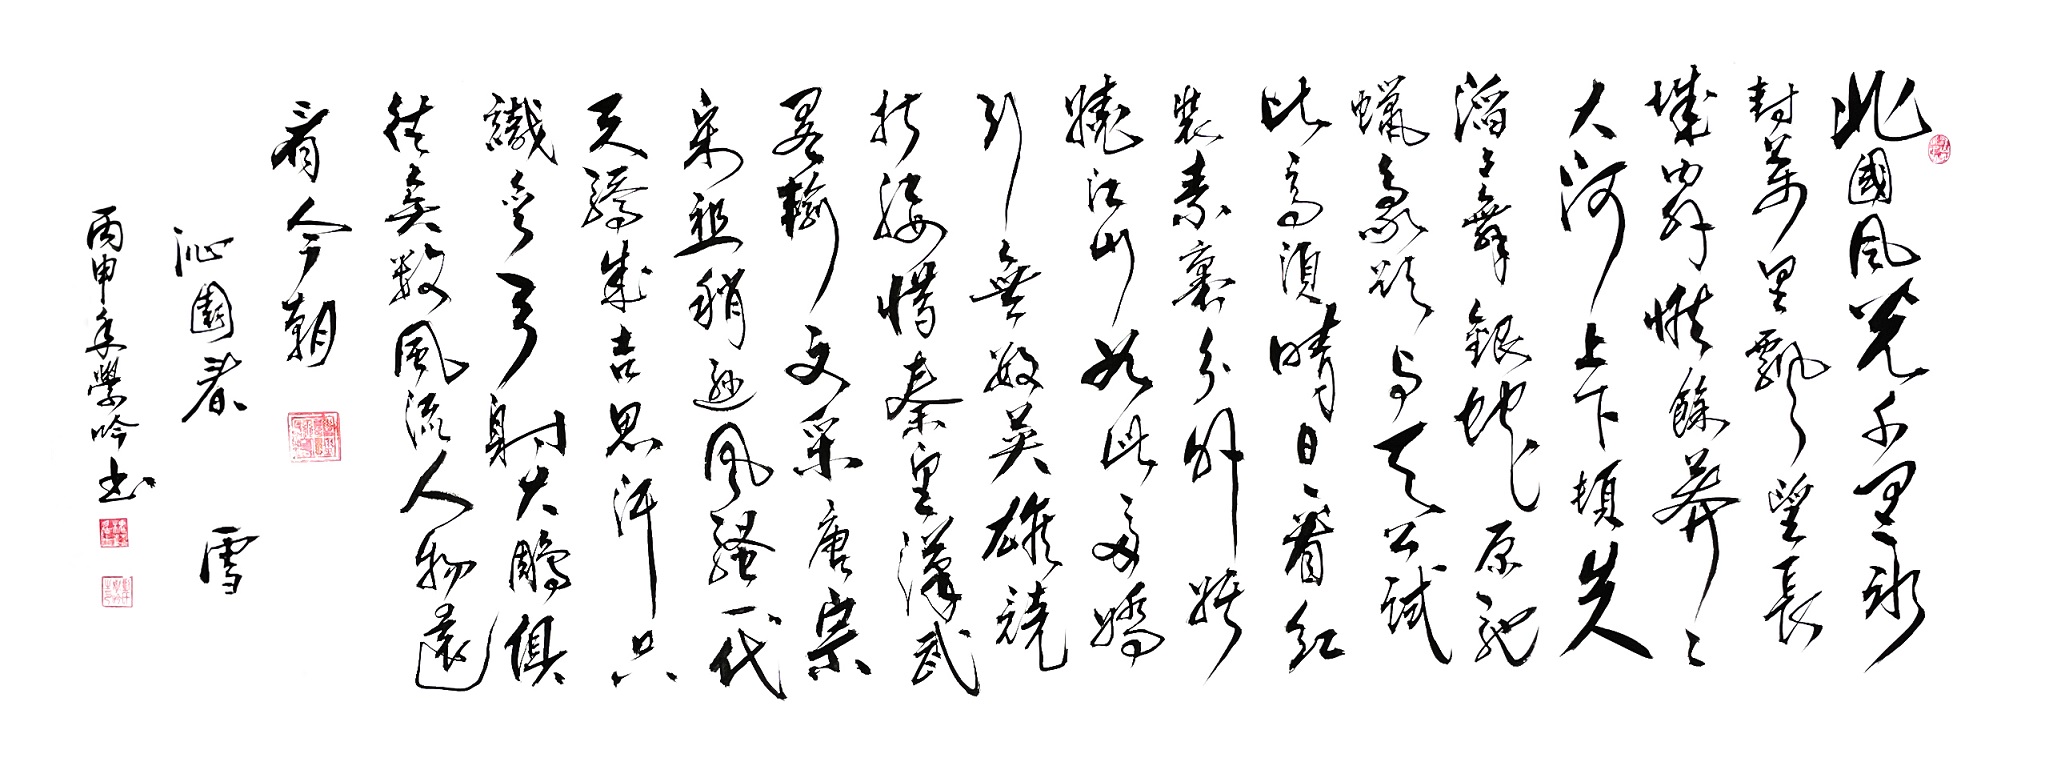 北國風光千里冰
封萬里飄望長
城內外惟餘莽〻
大河上下頓失
滔〻舞銀蛇原馳
蠟象欲与天公試
比高須晴日看紅
裝素裹分外妖
嬈江山如此多嬌
引無數英雄競
折腰惜秦皇漢武
畧輸文采唐宗
宋祖稍遜風騷一代
天驕成吉思汗只
識彎弓射大鵰俱
往矣數風流人物還
看今朝
沁園春 雪
丙申年學吟书